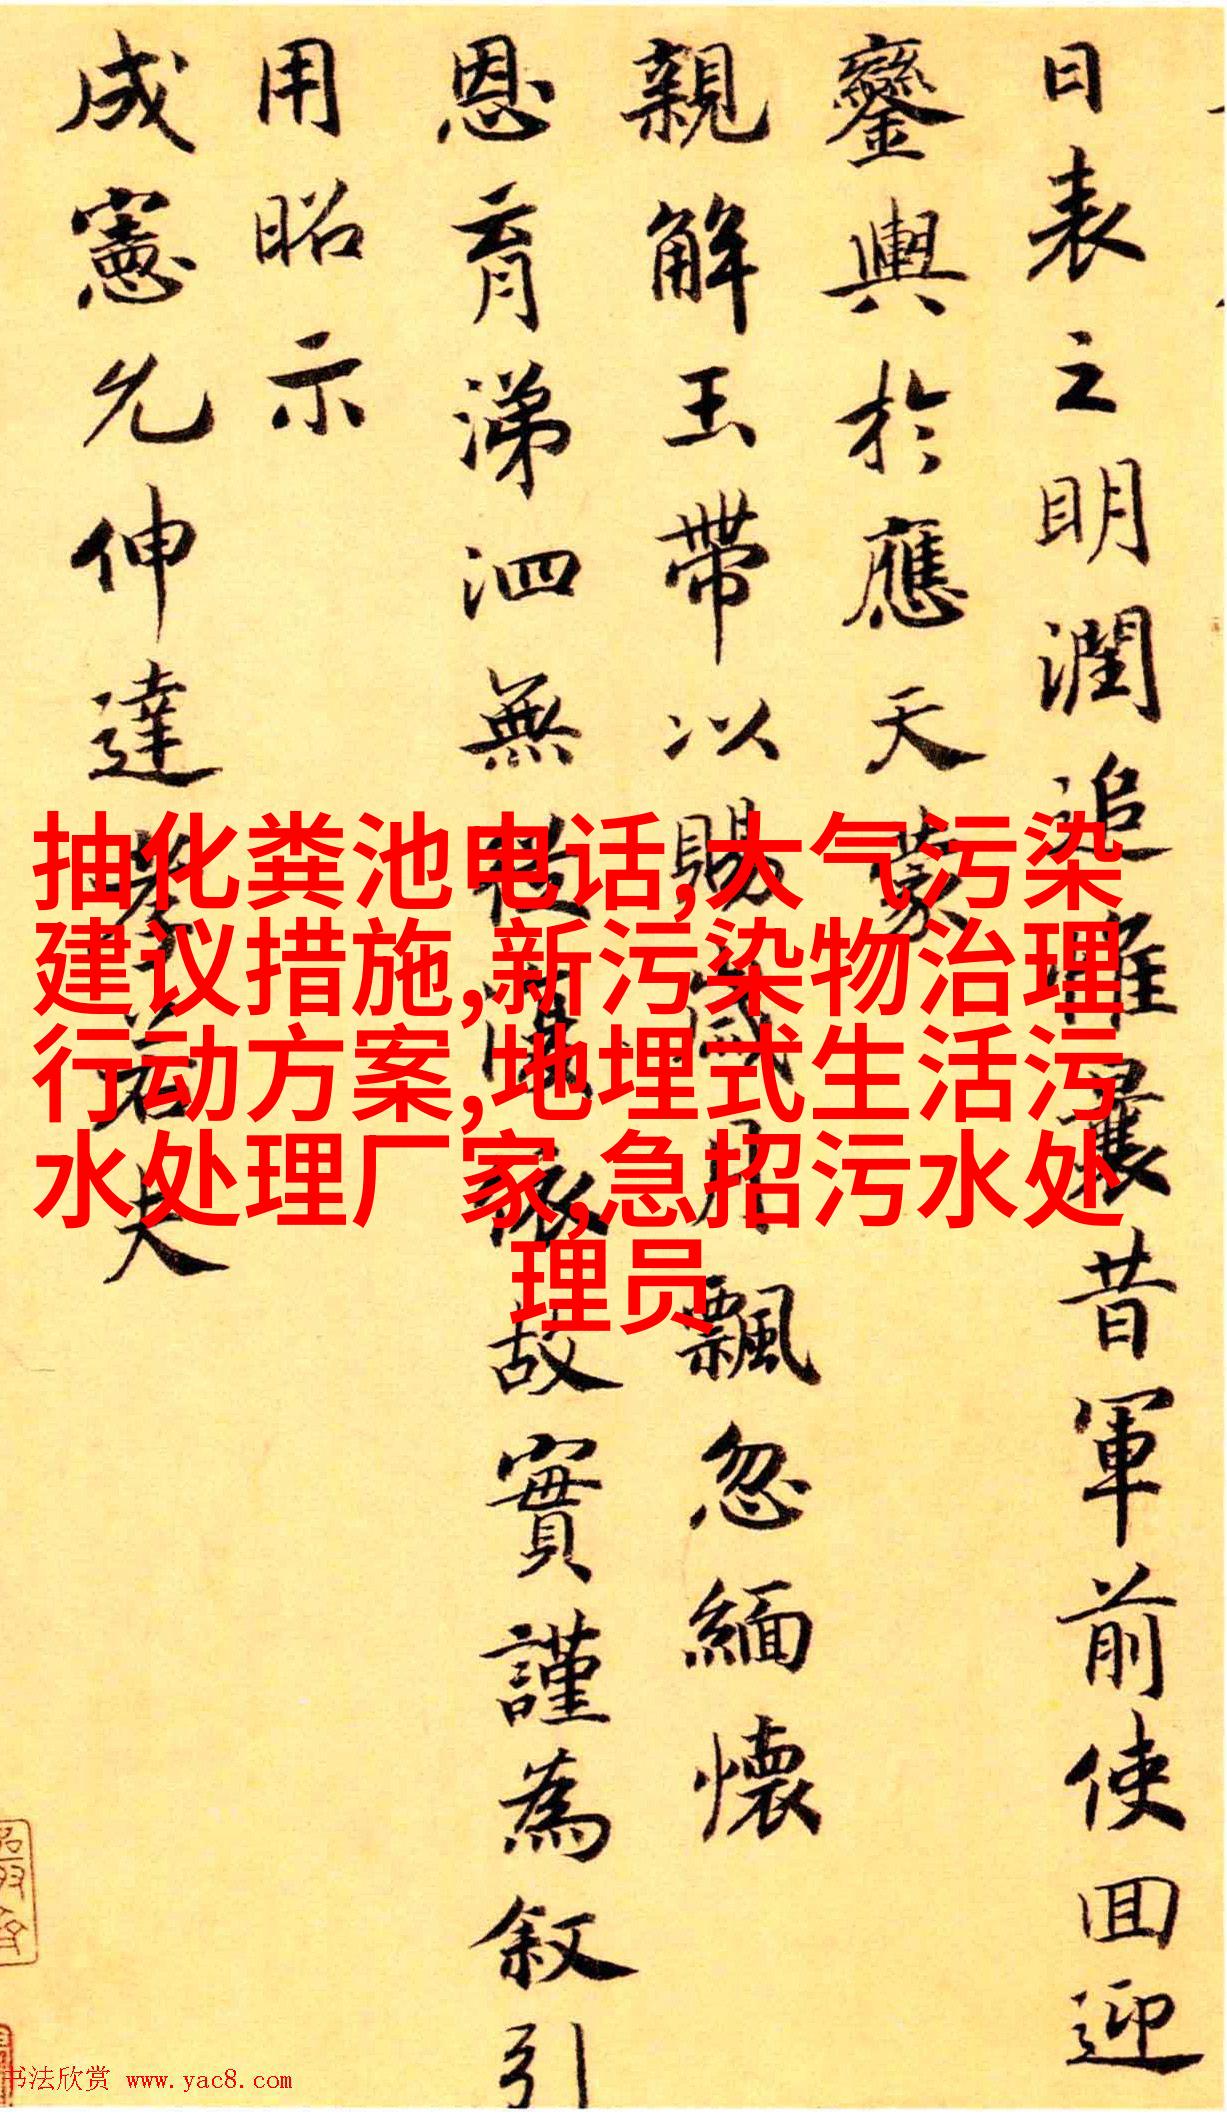 日表之明潤追惟曩昔軍前使回迎
鑾輿於應天蒙
親解玉帶以賜歲月飄忽緬懷
恩育涕泗無從慎家故實謹為叙引
用昭示
成憲允伸達孝若夫
抽化粪池电话,大气污染
建议措施,新污染物治理
行动方案,地埋式生活污
水处理厂家,急招污水处
理员
书法欣赏 www.yac8.com